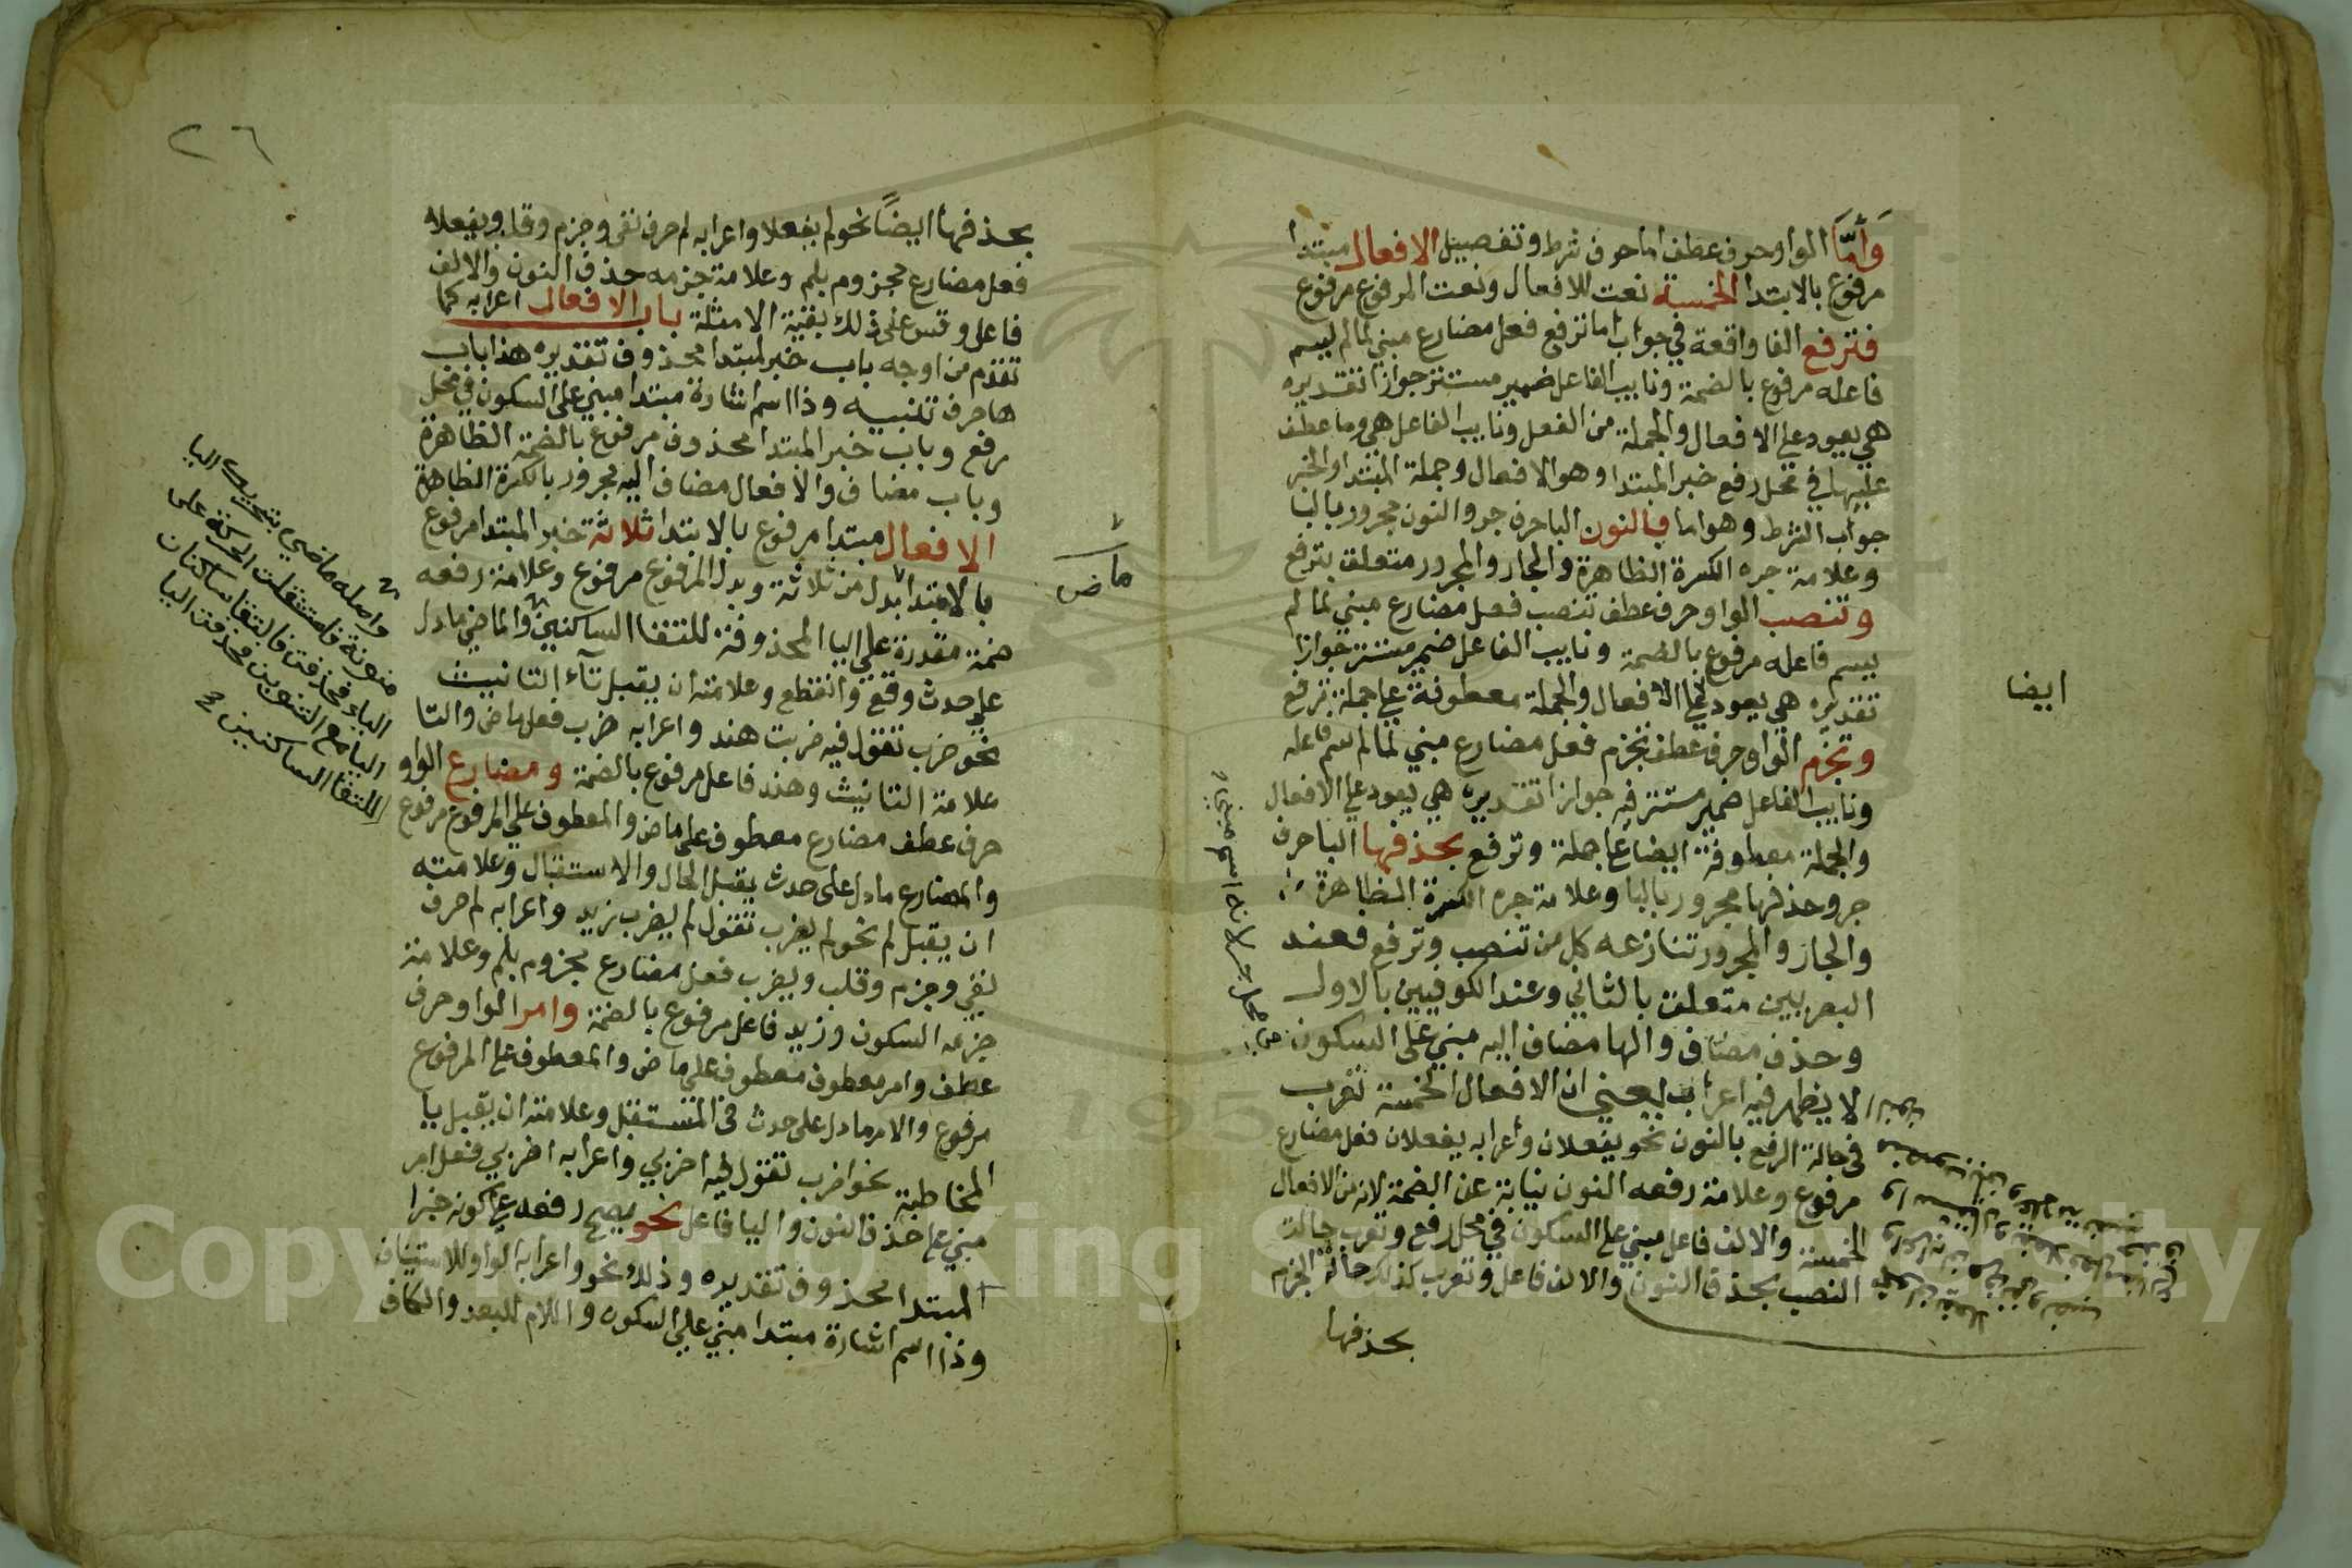 وأما الواو حرف عطف اما حرف شرط وتفصيل الافعال مبتدا
مرفوع بالابتدا الخمسة نعت للافعال ونعت المرفوع مرفوع
فترفع الفا واقعة في جواب اما ترفع فعل مضارع مبني لما لم ليسم
فاعله مرفوع بالضمة ونايب الفاعل ضمير مستتر جوازا تقديره
هي يعود على الافعال والجملة من الفعل ونايب الفاعل هي وما عطف
عليها في محل رفع خبر المبتدا وهو الافعال وجملة المبتدا والخبر
جواب الشرط وهو اما بالنون البا حرف جر والنون مجرور بالبا
وعلامة جره الكسرة الظاهرة والجار والمجرور متعلق بترفع
وتنصب الواو حرف عطف تنصب فعل مضارع مبني لما لم
يسم فاعله مرفوع بالضمة ونايب الفاعل ضمير مستتر جوازا
تقديره هي يعود على الافعال والجملة معطوفة على جملة ترفع
وتجزم الواو حرف عطف تجزم فعل مضارع مبني لما لم يسم فاعله
ونايب الفاعل ضمير مستتر فيه جوازا تقديره هي يعود على الافعال
والجملة معطوفة ايضا على جملة وترفع بحذفها البا حرف
جر وحذفها مجرور بالبا وعلامة جره الكسرة الظاهرة
والجار والمجرور تنازعه كل من تنصب وترفع فعند
البصريين متعلق بالثاني وعند الكوفيين بالاول
وحذف مضاف والها مضاف اليه مبني على السكون
لا يظهر فيه اعراب يعني ان الافعال الخمسة تعرب
في حالة الرفع بالنون نحو يفعلان واعرابه يفعلان فعل مضارع
مرفوع وعلامة رفعه النون نيابة عن الضمة لانه من الافعال
الخمسة والالف فاعل مبني على السكون في محل رفع وتعرب حالت
النصب بحذف النون والالف فاعل وتعرب كذلك حالة الجزم
بحذفها
ايضا
في محل جر لانه اسم مبني
٢٦
بحذفها ايضاً نحو لم يفعلا واعرابه لم حرف نفي وجزم وقلب ويفعلا
فعل مضارع مجزوم بلم وعلامة جزمه حذف النون والالف
فاعل وقس على ذلك بقية الامثلة باب الافعال اعرابه كما
تقدم من اوجه باب خبر لمبتدا محذوف تقديره هذا باب
ها حرف تنبيه وذا اسم اشارة مبتدا مبني على السكون في محل
رفع وباب خبر المبتدا محذوف مرفوع بالضمة الظاهرة
وباب مضاف والافعال مضاف اليه مجرور بالكسرة الظاهرة
الافعال مبتدا مرفوع بالابتدا ثلاثة خبر المبتدا مرفوع
بالابتدا بدل من ثلاثة وبدل المرفوع مرفوع وعلامة رفعه
ضمة مقدرة على اليا المحذوفة للتقا الساكنين والماضي ما دل
على حدث وقع وانقطع وعلامته ان يقبل تآء التانيث
نحو ضرب تقول فيه ضربت هند واعرابه ضرب فعل ماض والتا
علامة التانيث وهند فاعل مرفوع بالضمة ومضارع الواو
حرف عطف مضارع معطوف على ماض والمعطوف على المرفوع مرفوع
والمضارع ما دل على حدث يقبل الحال والاستقبال وعلامته
ان يقبل لم نحو لم يضرب تقول لم يضرب زيد واعرابه لم حرف
نفي وجزم وقلب ويضرب فعل مضارع مجزوم بلم وعلامة
جزمه السكون وزيد فاعل مرفوع بالضمة وامر الواو حرف
عطف وامر معطوف معطوف على ماض والمعطوف على المرفوع
مرفوع والامر ما دل على حدث في المستقبل وعلامته ان يقبل يا
المخاطبة نحو اضرب تقول فيه اضربي واعرابه اضربي فعل امر
مبني على حذف النون واليا فاعل نحو يصح رفعه على كونه خبرا
المبتدا محذوف تقديره وذلك نحو واعرابه الواو للاستيناف
وذا اسم اشارة مبتدا مبني على السكون واللام للبعد والكاف
ماض
واصله ماضي بتحريك اليا
منونة فاستثقلت الحركة على
الياء فحذفت فالتقا ساكنان
اليا مع التنوين فحذفت اليا
للتقا الساكنين
Copyright © King Saud University
195